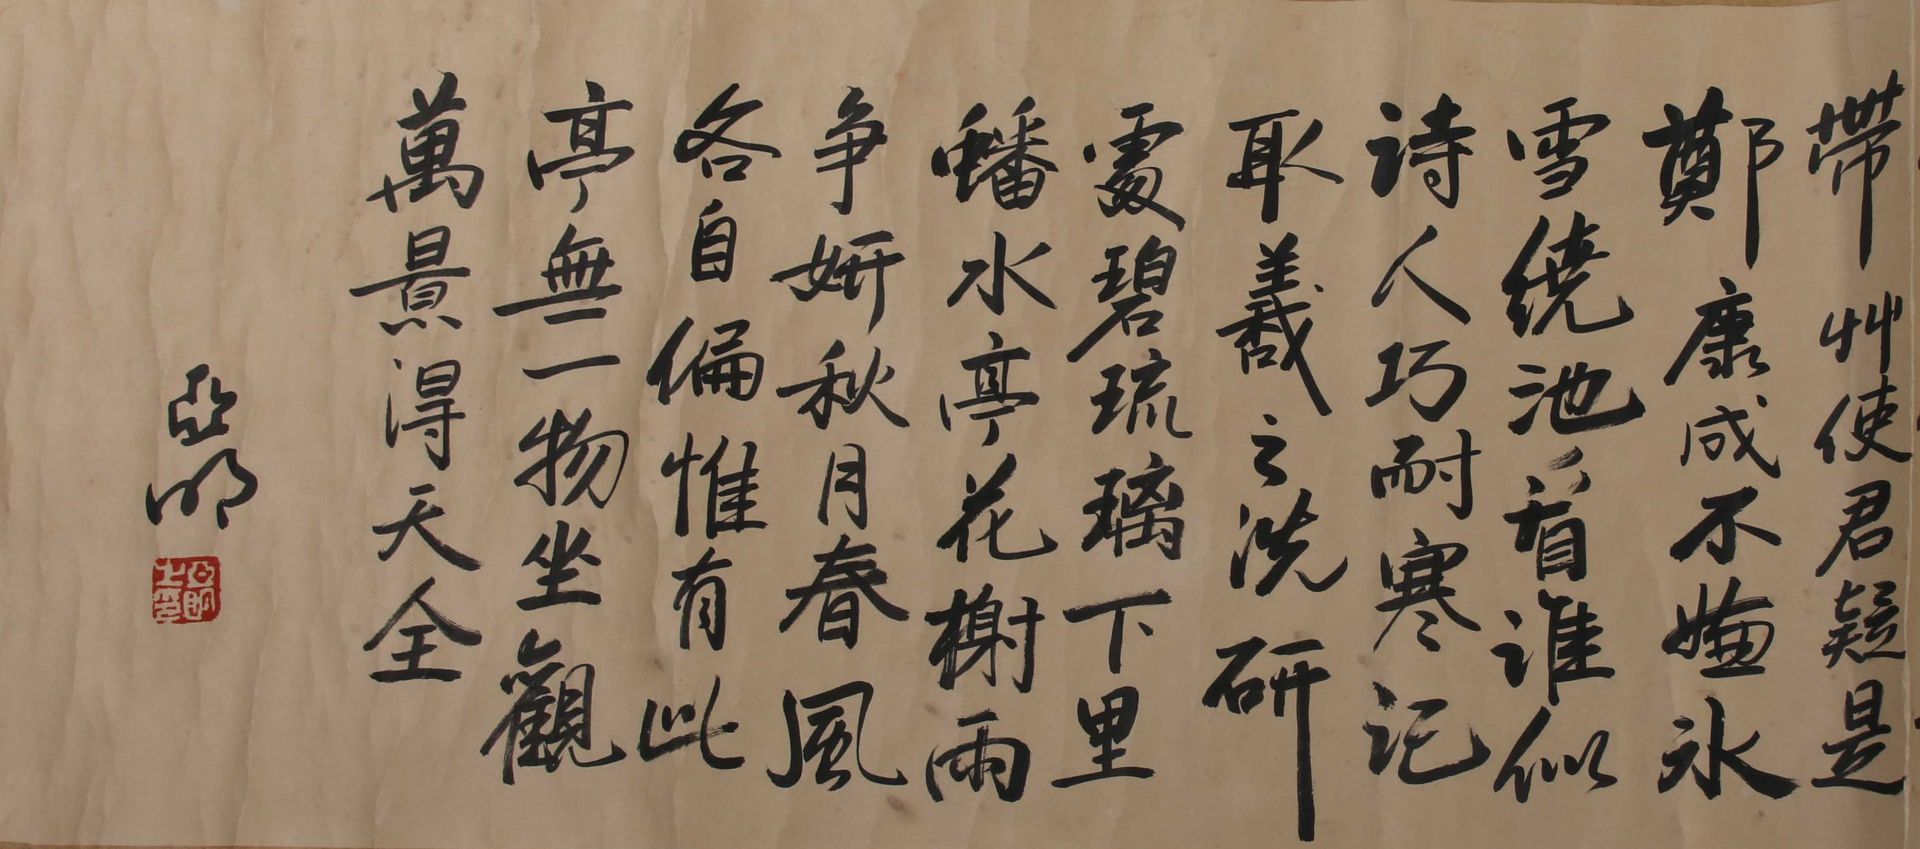 帶艸使君疑是
鄭康成不嫌冰
雪繞池看誰似
詩人巧耐寒記
取羲之洗研
處碧琉璃下里
蟠水亭花榭兩
爭妍秋月春風
各自偏惟有此
亭無一物坐觀
萬景得天全
亞明